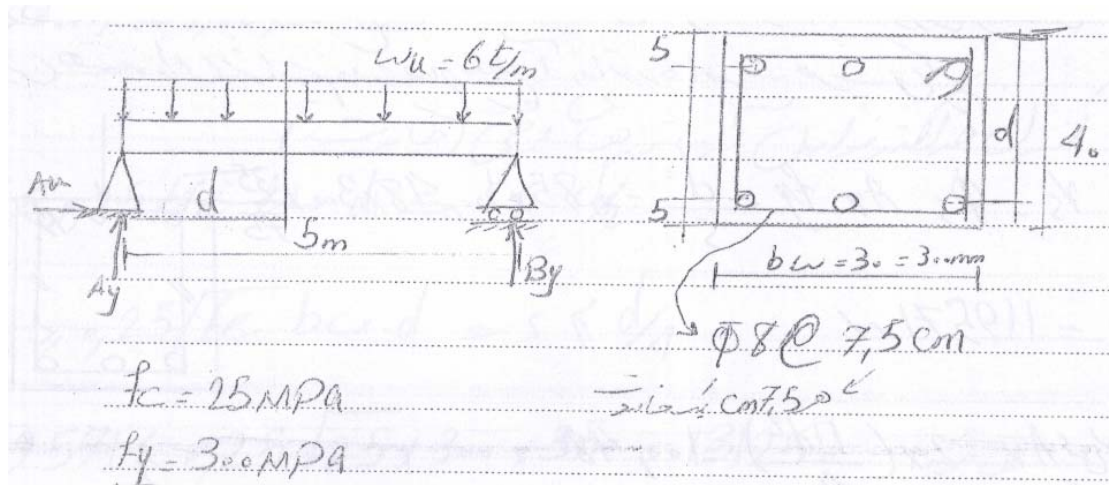 wu = 6t/m
5
d
4.
5
d
5m
Ay
By
bw = 3. = 3..mm
Φ8@ 7,5 cm
cm7,5
fc = 25 MPa
fy = 3.. MPa